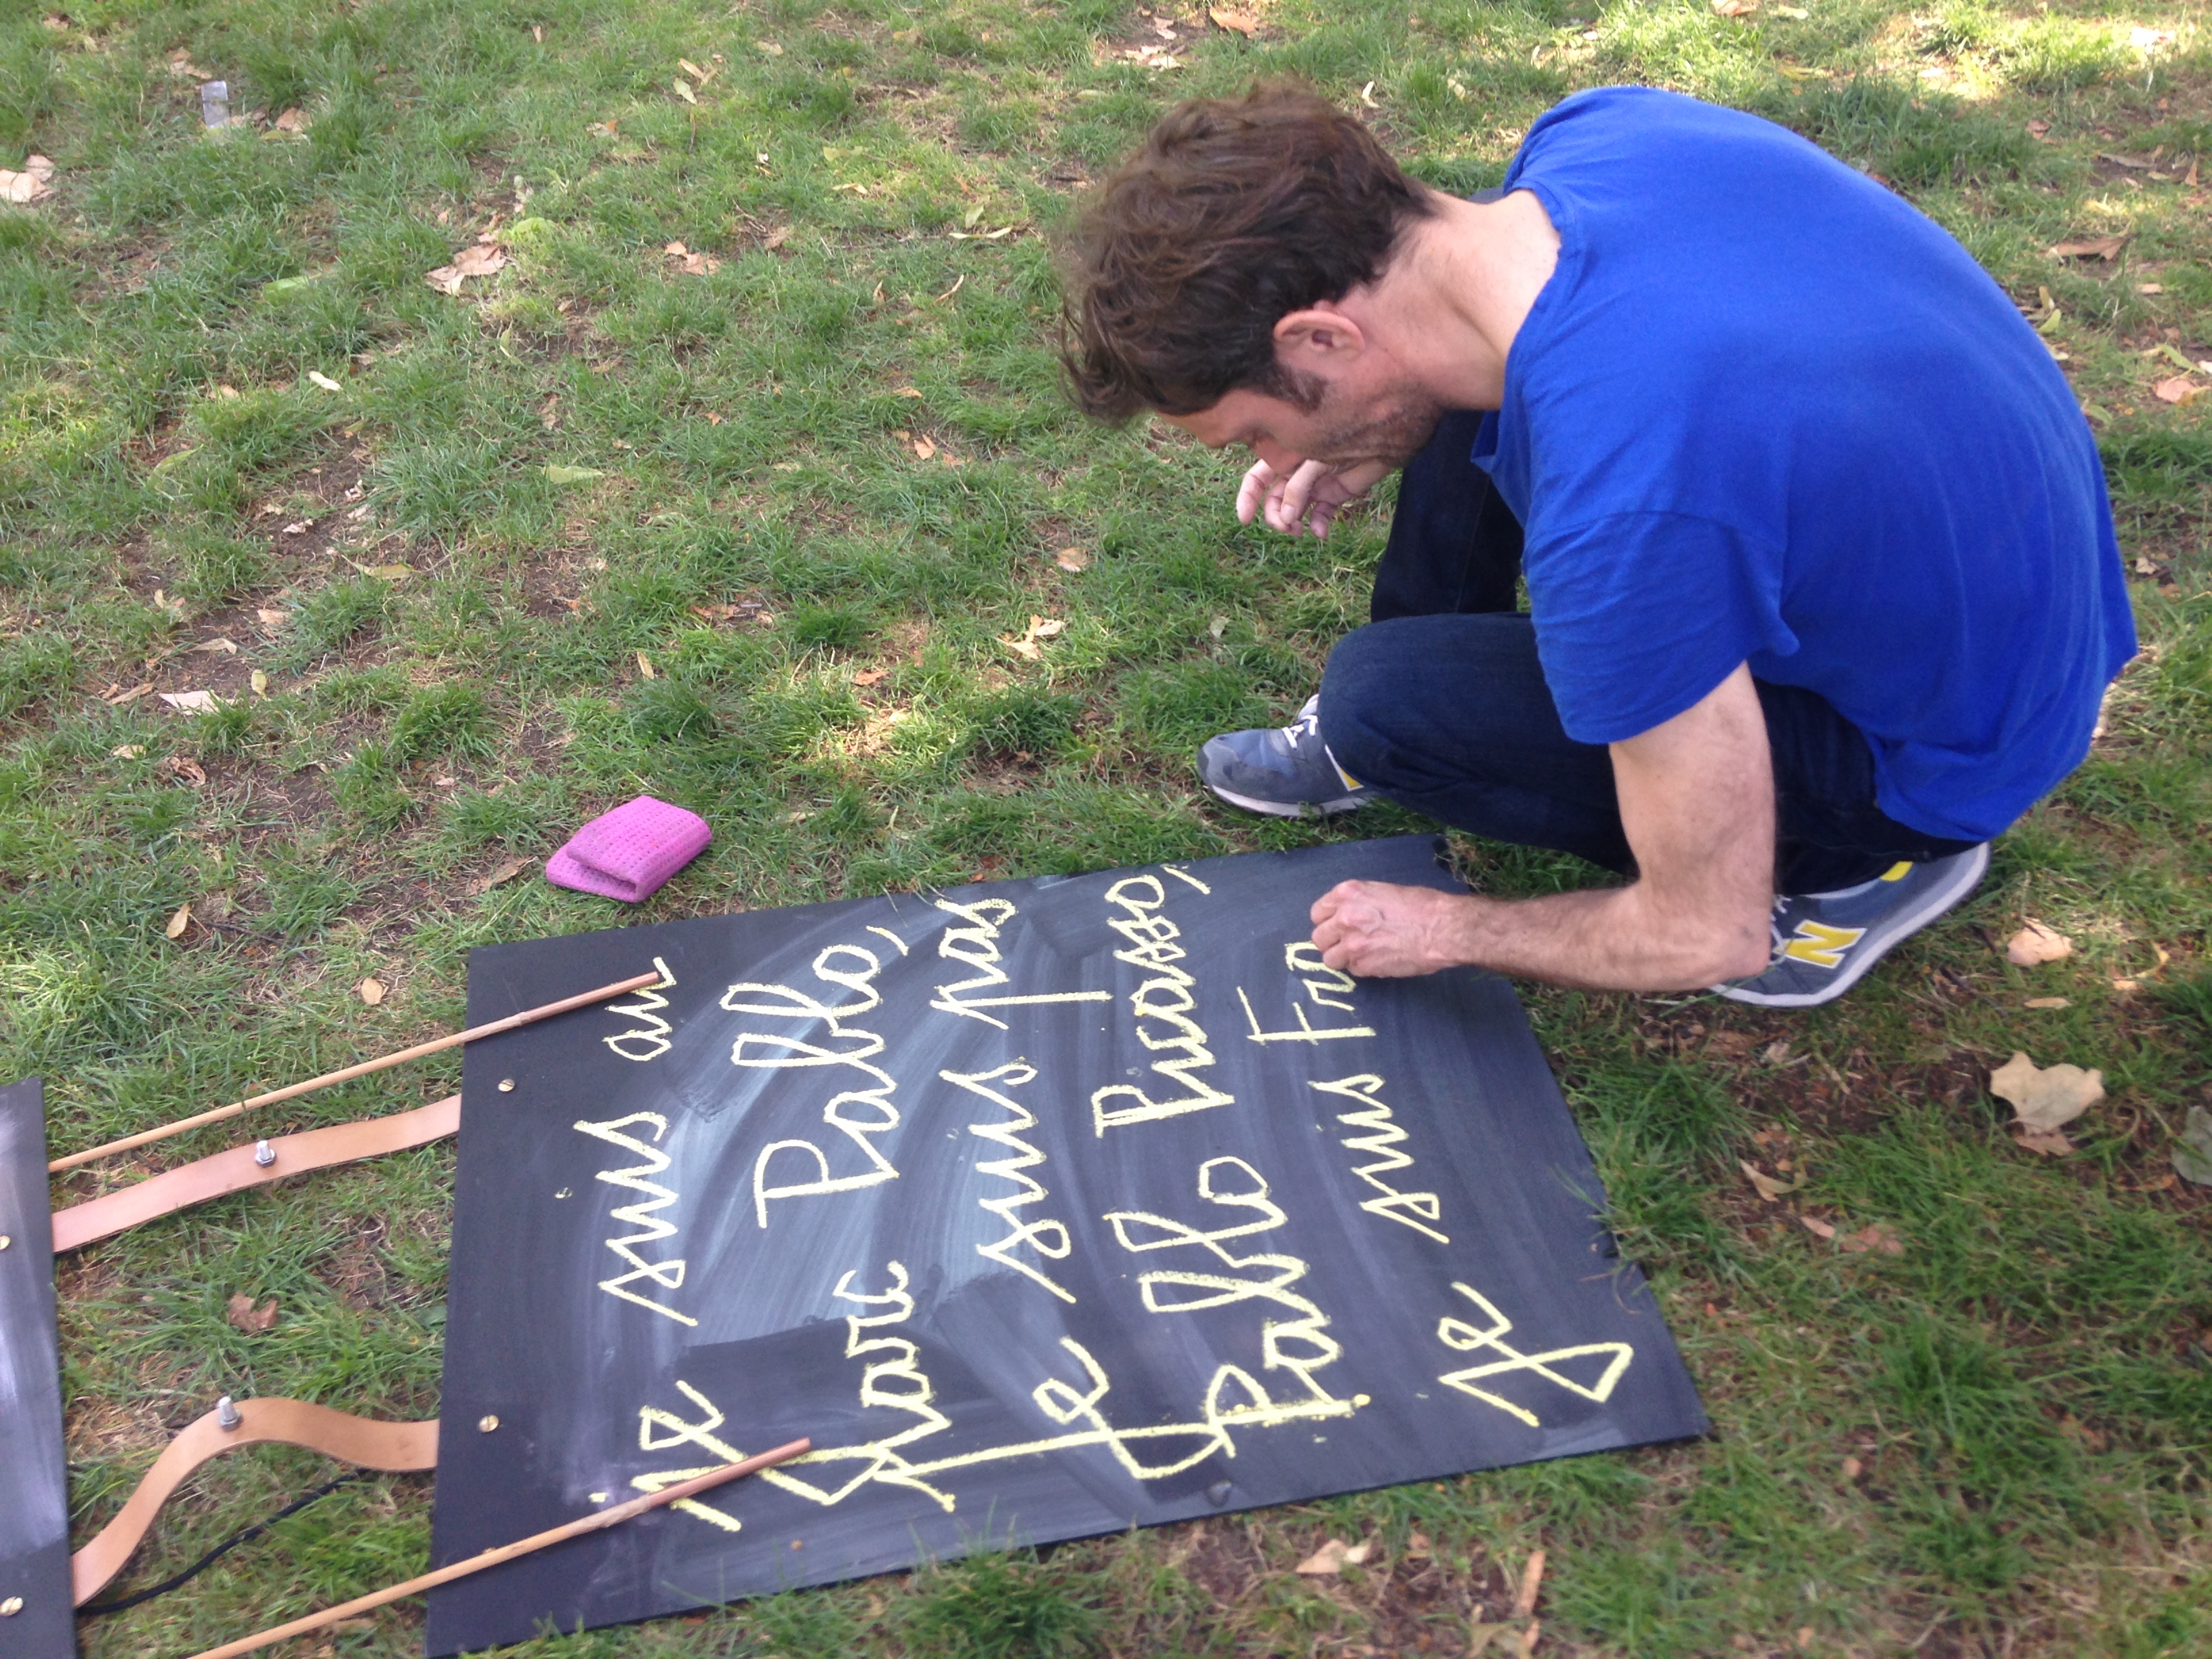 je suis au
Marc Pablo,
je suis pas
Pablo Picasso,
Je suis Fra
N